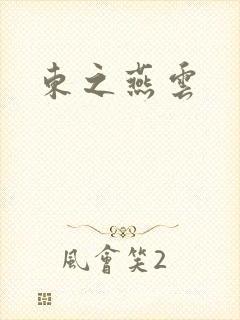 東之燕雲
風會笑2